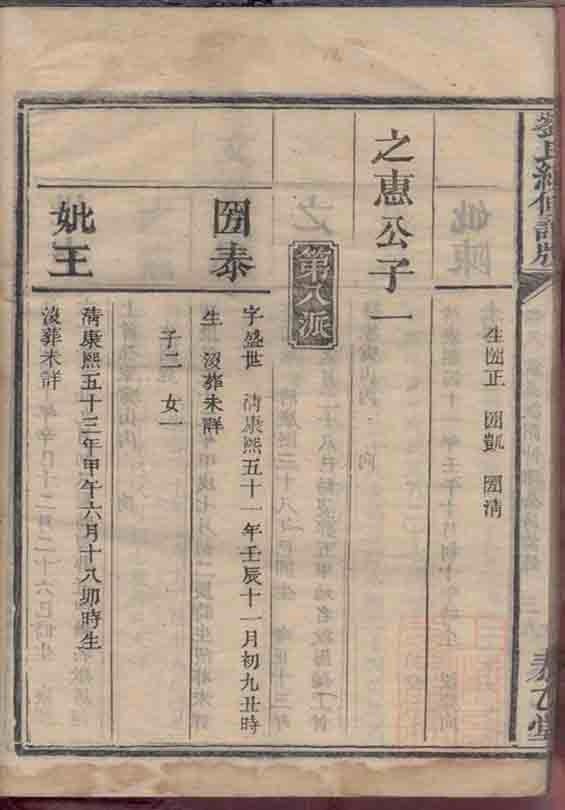 乙堂
生圀正 圀凱 圀清
之惠公子一
第八派
圀泰
字盛世 清康熙五十一年壬辰十一月初九丑時
生 没葬未詳
子二 女一
妣王
清康熙五十三年甲午六月十八卯時生
没葬未詳